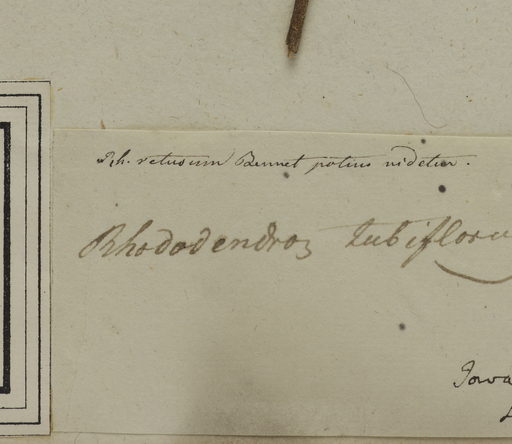 Rh. retusum Bennet potius videtur.
Rhododendron tubifloru
Java